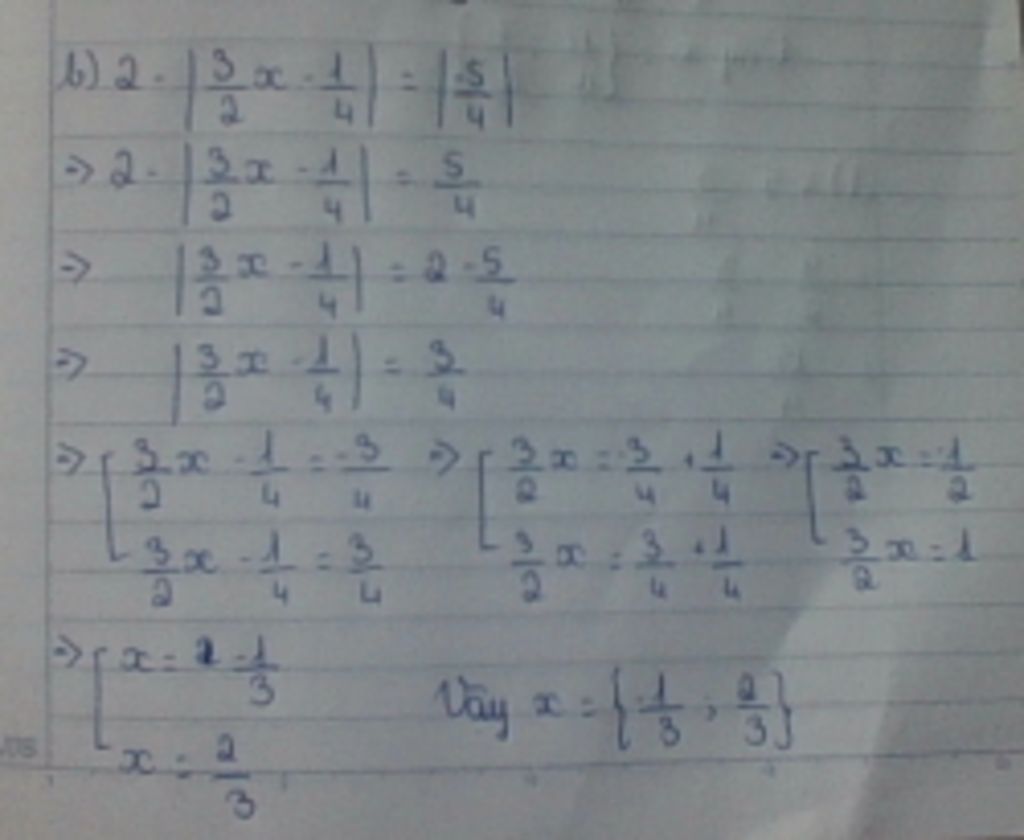 b) 2 - |3/2 x - 1/4| = |-5/4|
=> 2 - |3/2 x - 1/4| = 5/4
=> |3/2 x - 1/4| = 2 - 5/4
=> |3/2 x - 1/4| = 3/4
=> [ 3/2 x - 1/4 = -3/4 => [ 3/2 x = -3/4 + 1/4 => [ 3/2 x = -1/2
3/2 x - 1/4 = 3/4 3/2 x = 3/4 + 1/4 3/2 x = 1
=> [ x = -1/3
x = 2/3 Vậy x = {-1/3 ; 2/3}